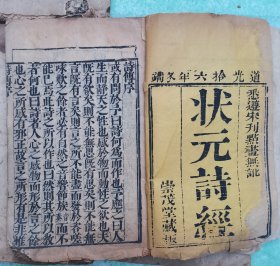 道光拾六年冬鐫
悉遵宋刊點畫無訛
狀元詩經
崇茂堂藏板
詩傳序
或有問於予曰詩何為而作也予應之曰人
生而靜天之性也感於物而動性之欲也夫
既有欲矣則不能無思既有思矣則不能無
言既有言矣則言之所不能盡而發於咨嗟
咏歎之餘者必有自然之音響節族而不
能已焉此詩之所以作也曰然則其所以教
者何也曰詩者人心之感物而形於言之餘
也心之所感有邪正故言之所形有是非